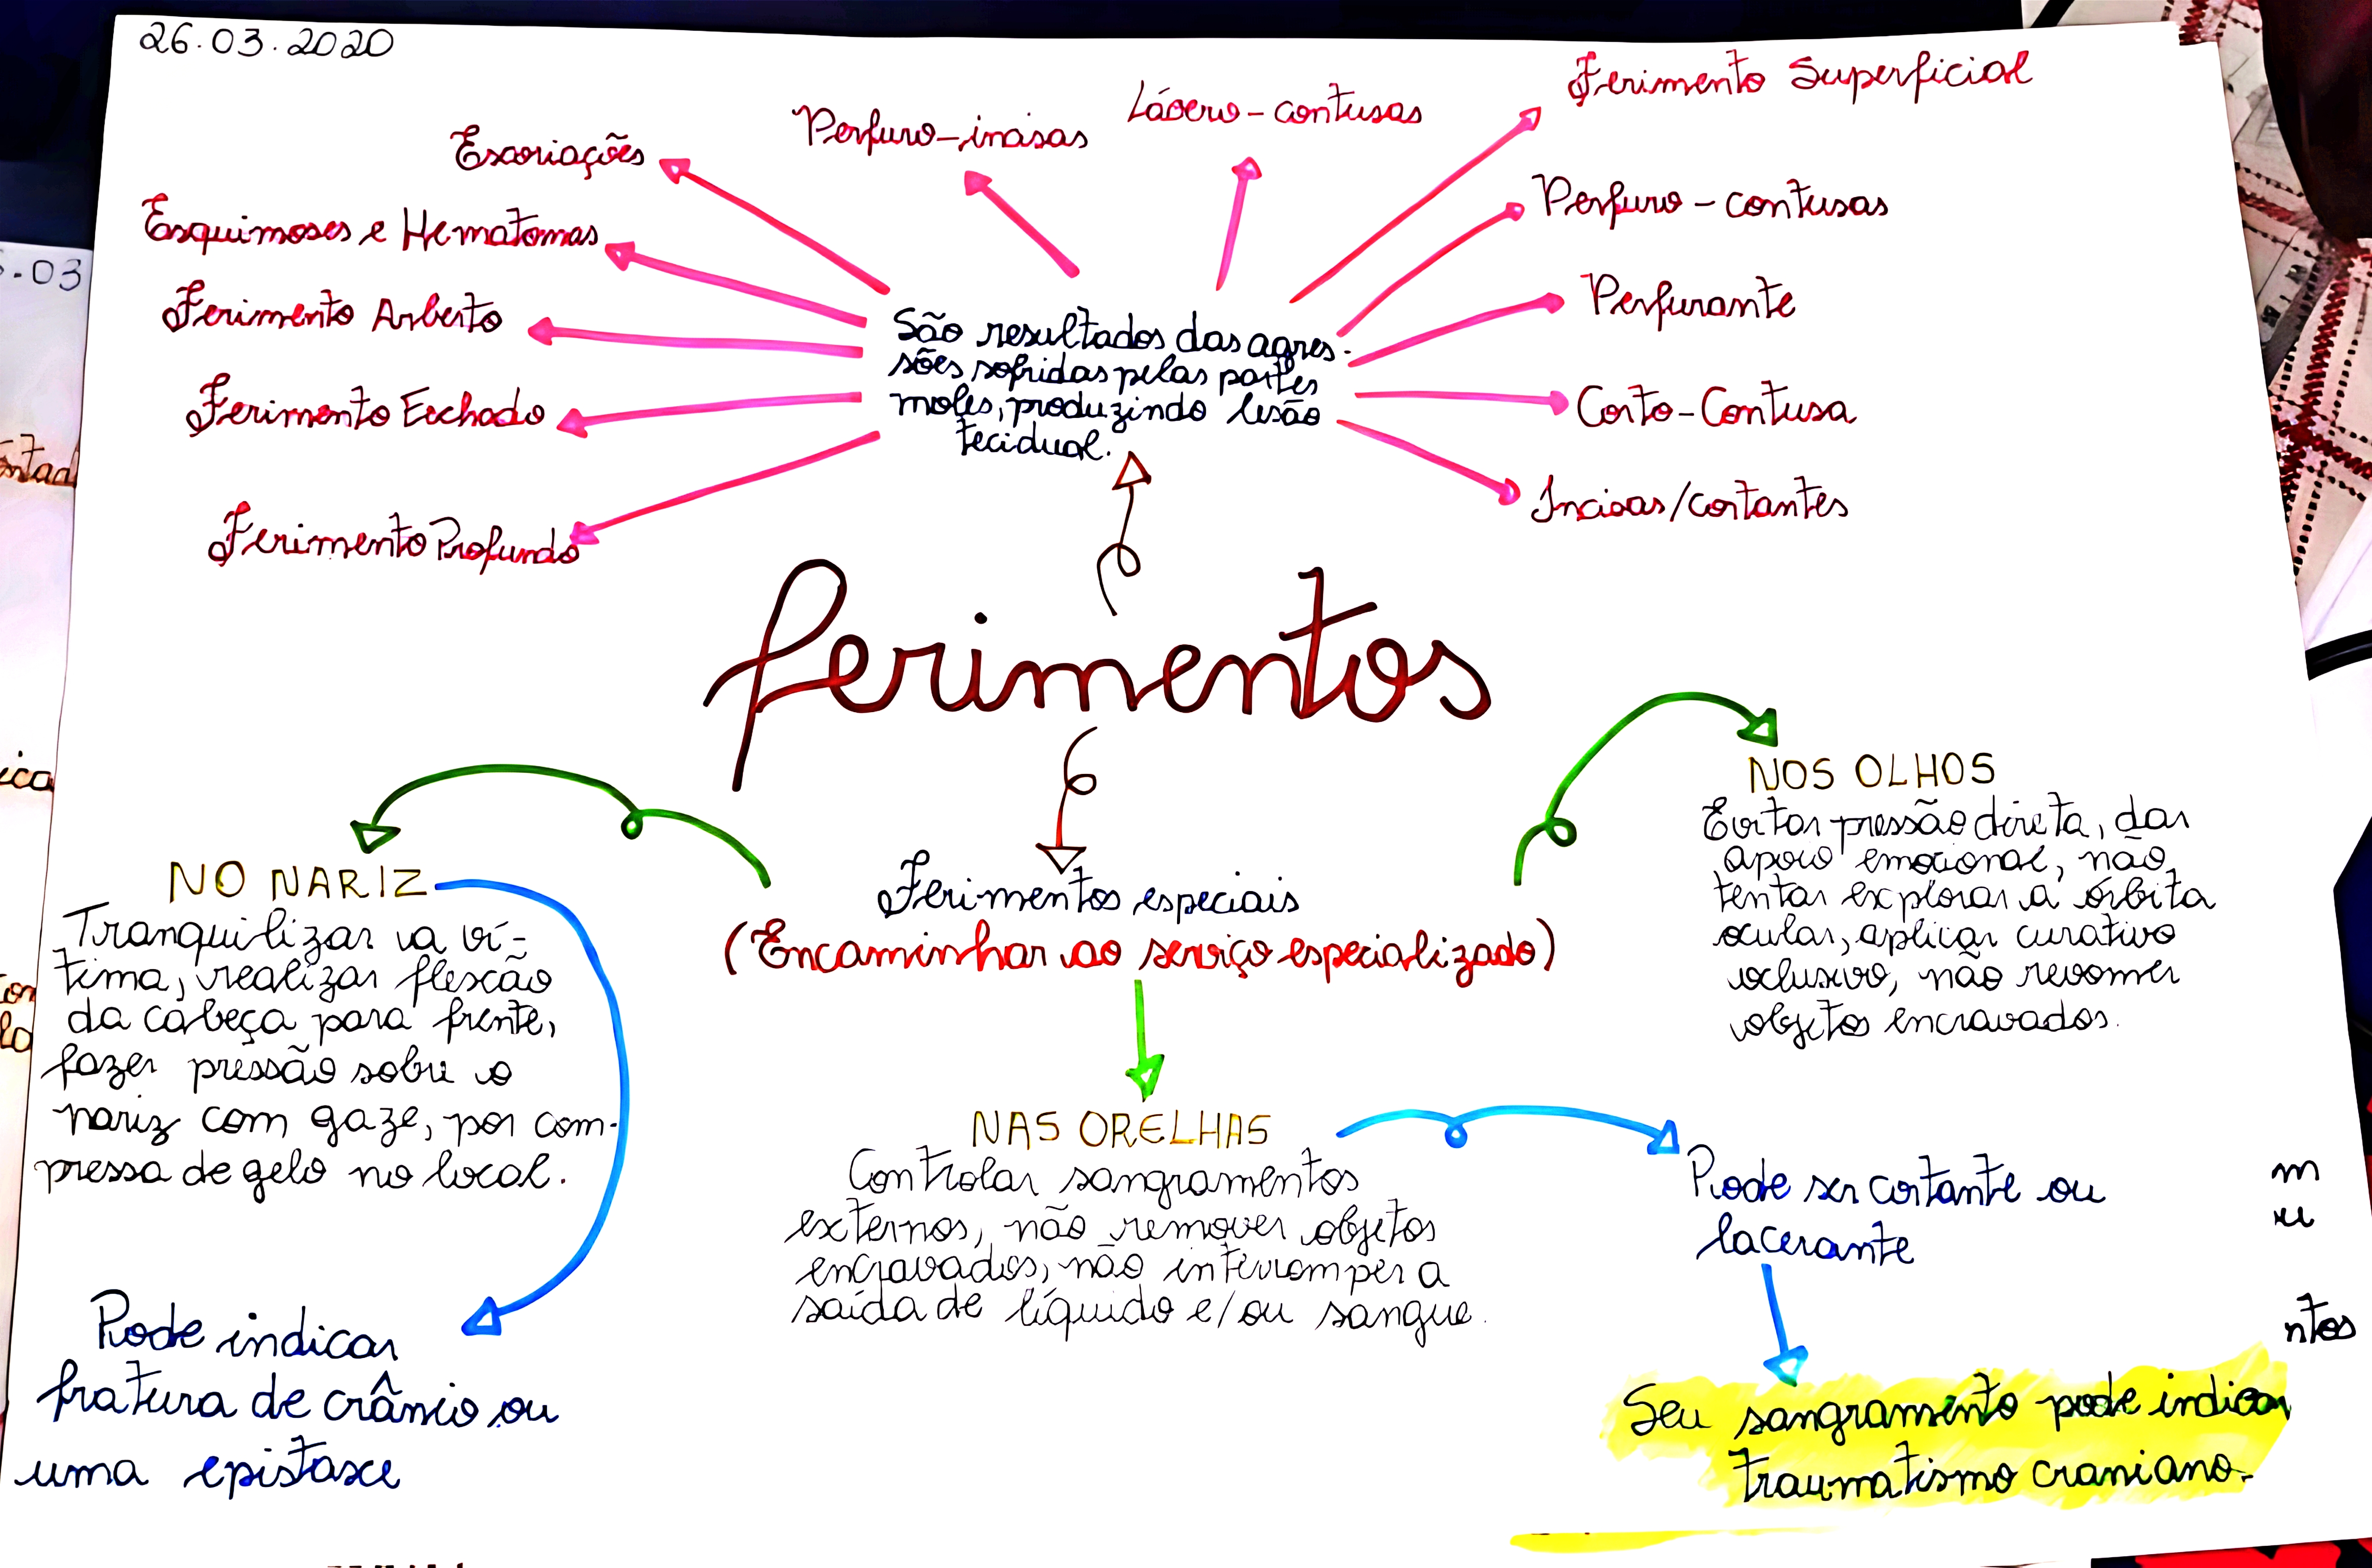 26.03.2020
Escoriações
Perfuro-incisas
Lácero-contusas
Ferimento Superficial
Esquimoses e Hematomas
Perfuro-contusas
Ferimento Arberto
Perfurante
Ferimento Fechado
Corto-Contusa
Ferimento Profundo
Incisas/cortantes
São resultados das agres-
sões sofridas pelas partes
moles, produzindo lesão
tecidual.
ferimentos
Ferimentos especiais
(Encaminhar ao serviço especializado)
NO NARIZ
Tranquilizar a ví-
tima, realizar flexão
da cabeça para frente,
fazer pressão sobre o
nariz com gaze, por com-
pressa de gelo no local.
Pode indicar
fratura de crânio ou
uma epistaxe
NOS OLHOS
Evitar pressão direta, dar
apoio emocional, não
tentar explorar a órbita
ocular, aplicar curativo
oclusivo, não revomer
objetos encravados.
NAS ORELHAS
Controlar sangramentos
externos, não remover objetos
encravados, não interromper a
saída de líquido e/ou sangue.
Pode ser cortante ou
lacerante
Seu sangramento pode indicar
traumatismo craniano.
.03
ica
m
u
ntos